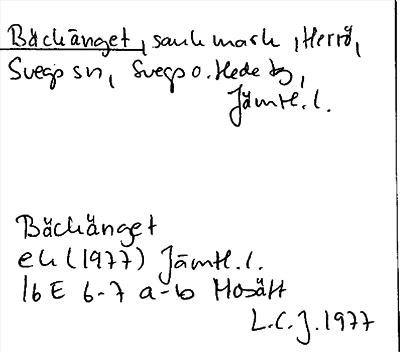 Bäckänget, sank mark, Herrö,
Svegs sn, Svegs o. Hede tg,
Jämtl. l.
Bäckänget
ek (1977) Jämtl. l.
16 E 6-7 a-b Mosätt
L.C.J. 1977